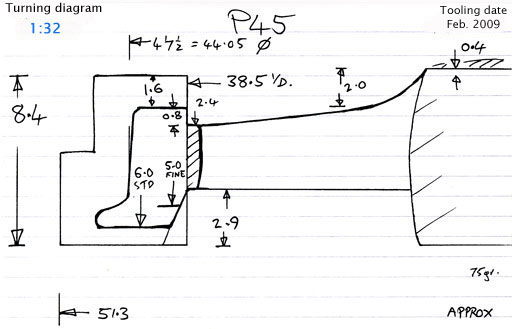 Turning diagram
1:32
P45
Tooling date
Feb. 2009
47½ = 44.05 Ø
0.4
38.5 I/D.
1.6
2.0
2.4
0.8
8.4
6.0
STD
5.0
FINE
2.9
75gr.
51.3
APPROX